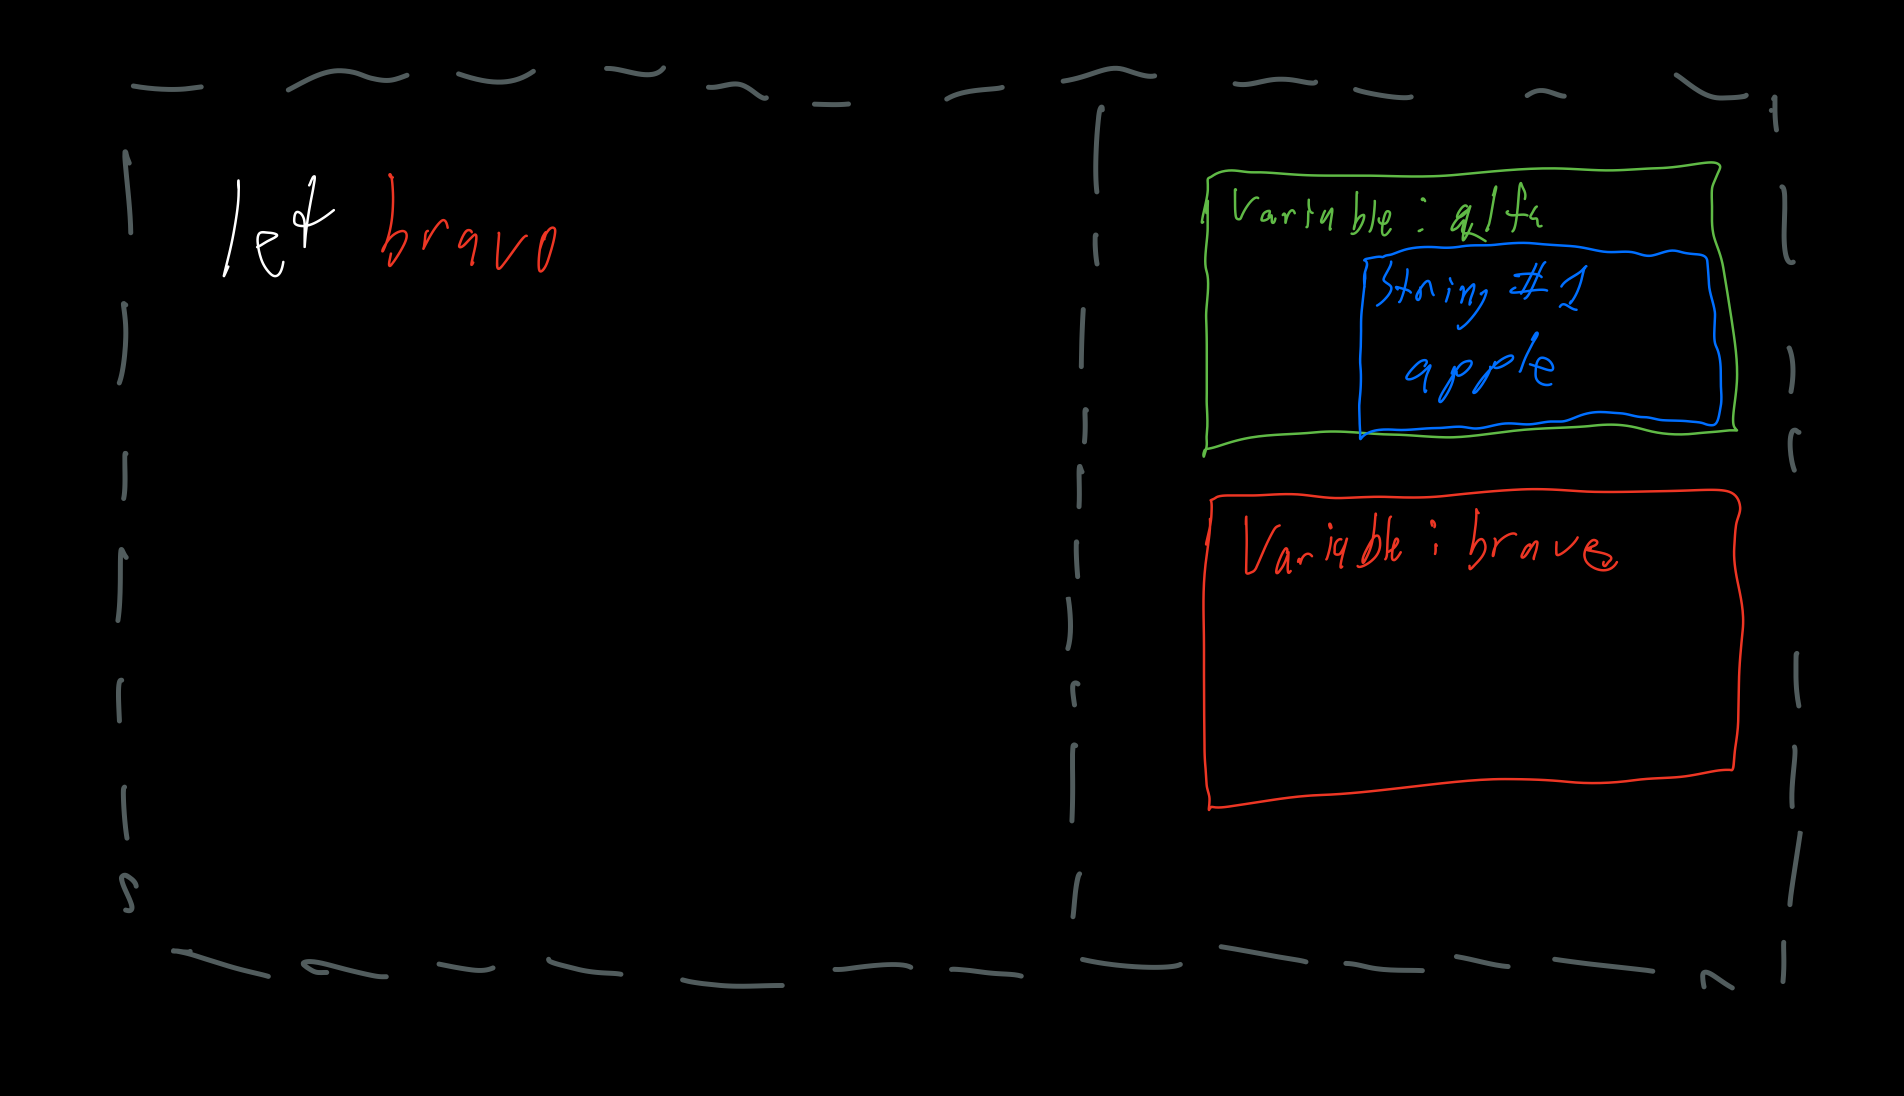 let bravo
Variable: alfa
String #1
apple
Variable: bravo